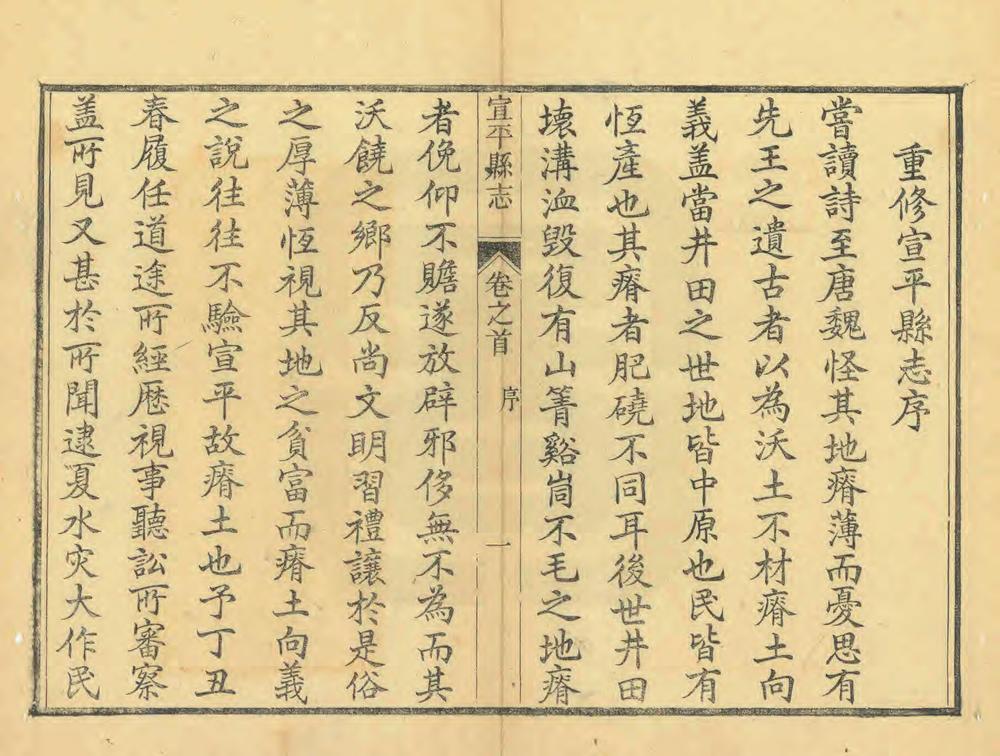 重修宣平縣志序
嘗讀詩至唐魏怪其地瘠薄而憂思有
先王之遺古者以為沃土不材瘠土向
義蓋當井田之世地皆中原也民皆有
恆產也其瘠者肥磽不同耳後世井田
壞溝洫毀復有山箐谿峝不毛之地瘠
宣平縣志 卷之首 序 一
者俛仰不贍遂放辟邪侈無不為而其
沃饒之鄉乃反尚文明習禮讓於是俗
之厚薄恆視其地之貧富而瘠土向義
之說往往不驗宣平故瘠土也予丁丑
春履任道途所經歷視事聽訟所審察
蓋所見又甚於所聞逮夏水灾大作民